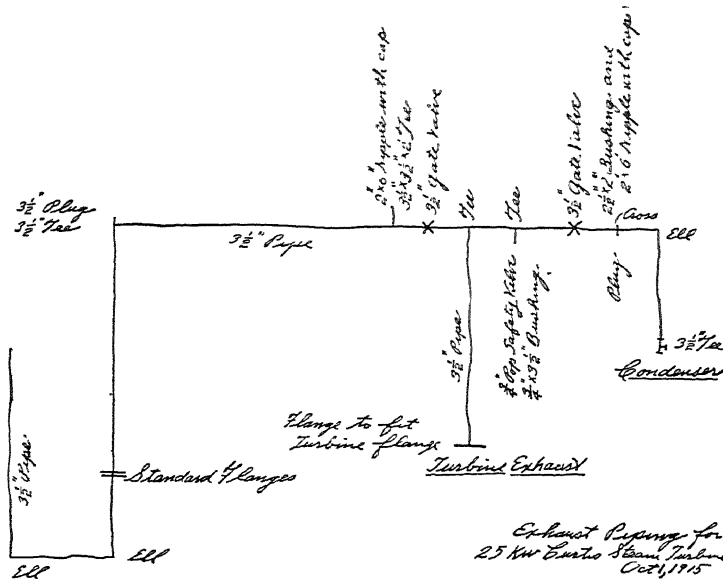 2"x6" Nipple with cap
3½"x3½"x2" Tee
3½" Gate Valve
Tee
Tee
3½" Gate Valve
2½"x2" Bushing and
2"x6" Nipple with cap
Cross
Ell
3½" Plug
3½" Tee
3½" Pipe
Plug
3½" Pipe
¾" Pop Safety Valve
¾"x3½" Bushing
3½" Tee
Condenser
Flange to fit
Turbine flange
Turbine Exhaust
3½" Pipe
Standard Flanges
Ell
Ell
Exhaust Piping for
25 Kw Curtis Steam Turbine
Oct 1, 1915